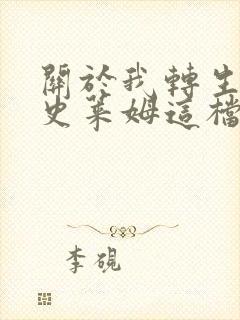 關於我轉生
史萊姆這檔
李硯